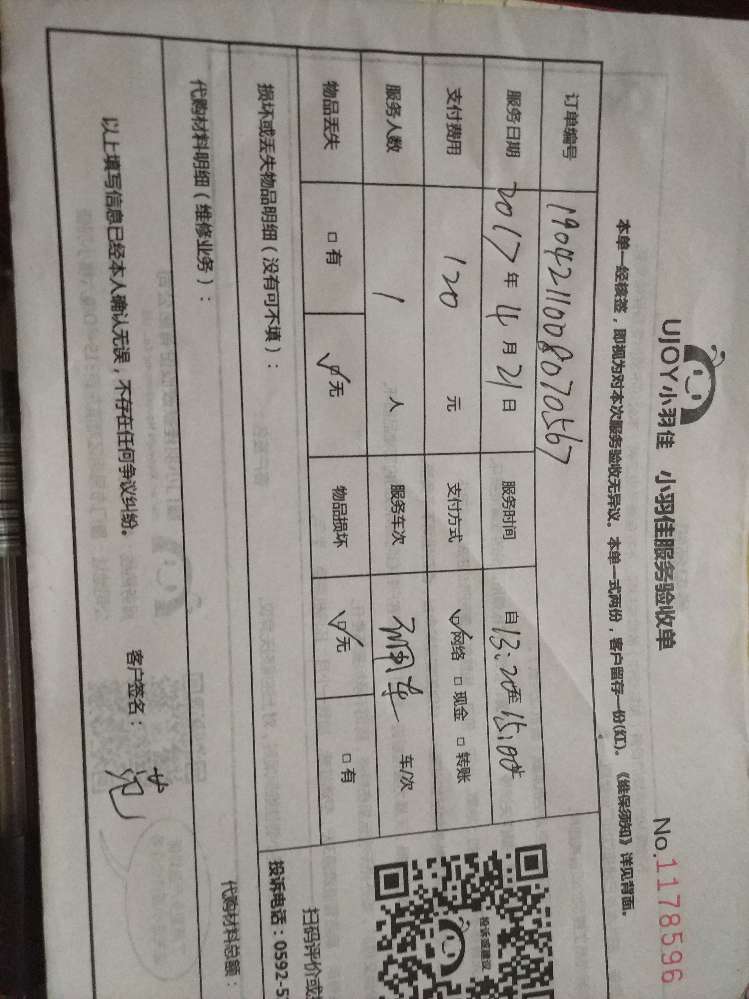 UJOY小羽佳 小羽佳服务验收单 No.1178596
本单一经核签，即视为对本次服务验收无异议。本单一式两份，客户留存一份(红)。《维保须知》详见背面。
订单编号 1904211008070567
服务日期 2017年4月21日 服务时间 自13:20至15:00
支付费用 120元 支付方式 ☑网络 □现金 □转账
服务人数 1人 服务车次 车/次
物品丢失 □有 ☑无 物品损坏 ☑无 □有
损坏或丢失物品明细（没有可不填）：
代购材料明细（维修业务）：
代购材料总额：
以上填写信息已经本人确认无误，不存在任何争议纠纷。
客户签名：
投诉或建议
扫码评价或
投诉电话：0592-5